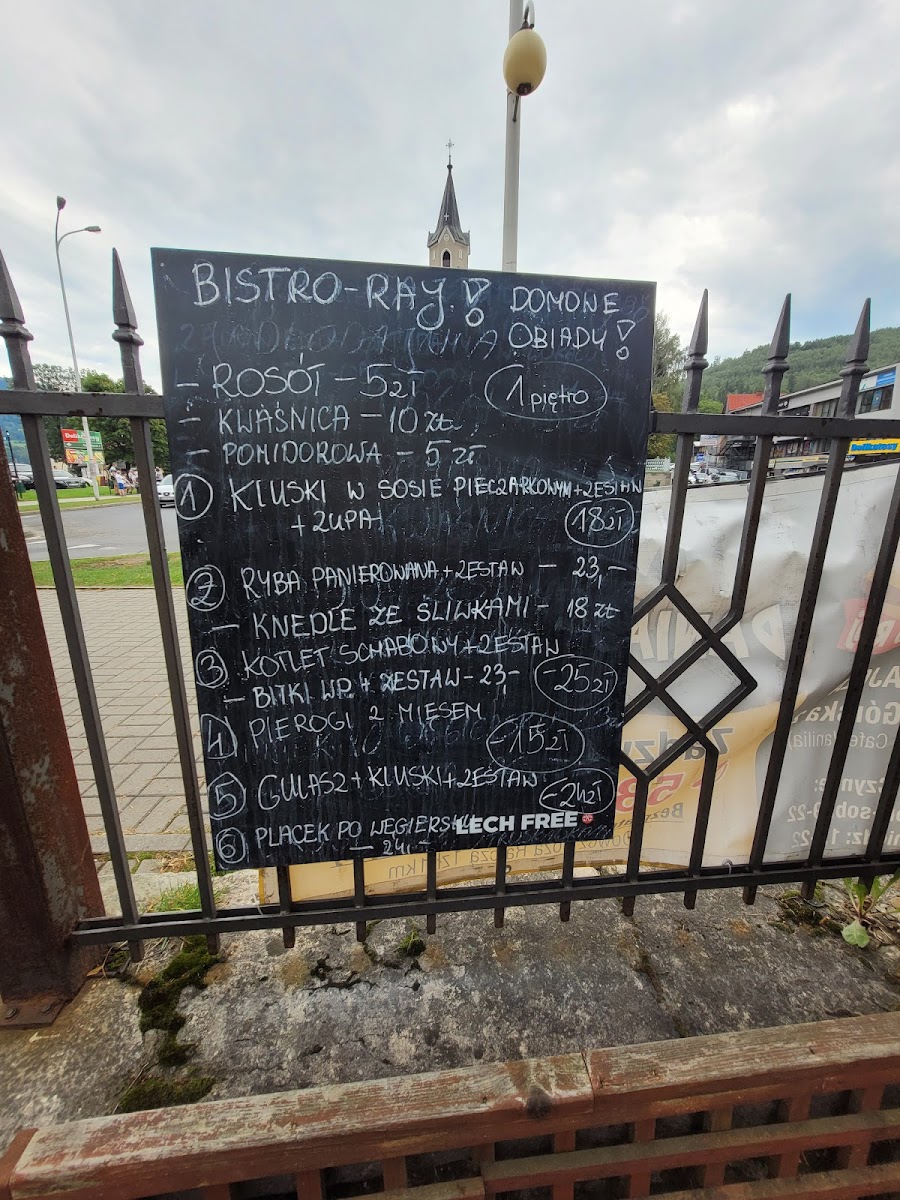 BISTRO-RAJ! DOMONE
OBIADY!
- ROSÓŁ - 5 zł
1 piętro
- KWAŚNICA - 10 zł
- POMIDOROWA - 5 zł
1 KLUSKI W SOSIE PIECZARKOWYM + ZESTAW
+ ZUPA 18 zł
2 RYBA PANIEROWANA + ZESTAW - 23,-
- KNEDLE ZE ŚLIWKAMI - 18 zł
3 KOTLET SCHABOWY + ZESTAW
- 25 zł
- BITKI WP. + ZESTAW - 23,-
4 PIEROGI Z MIĘSEM
- 15 zł
5 GULASZ + KLUSKI + ZESTAW
- 24 zł
6 PLACEK PO WĘGIERSKU
- 24,-
LECH FREE